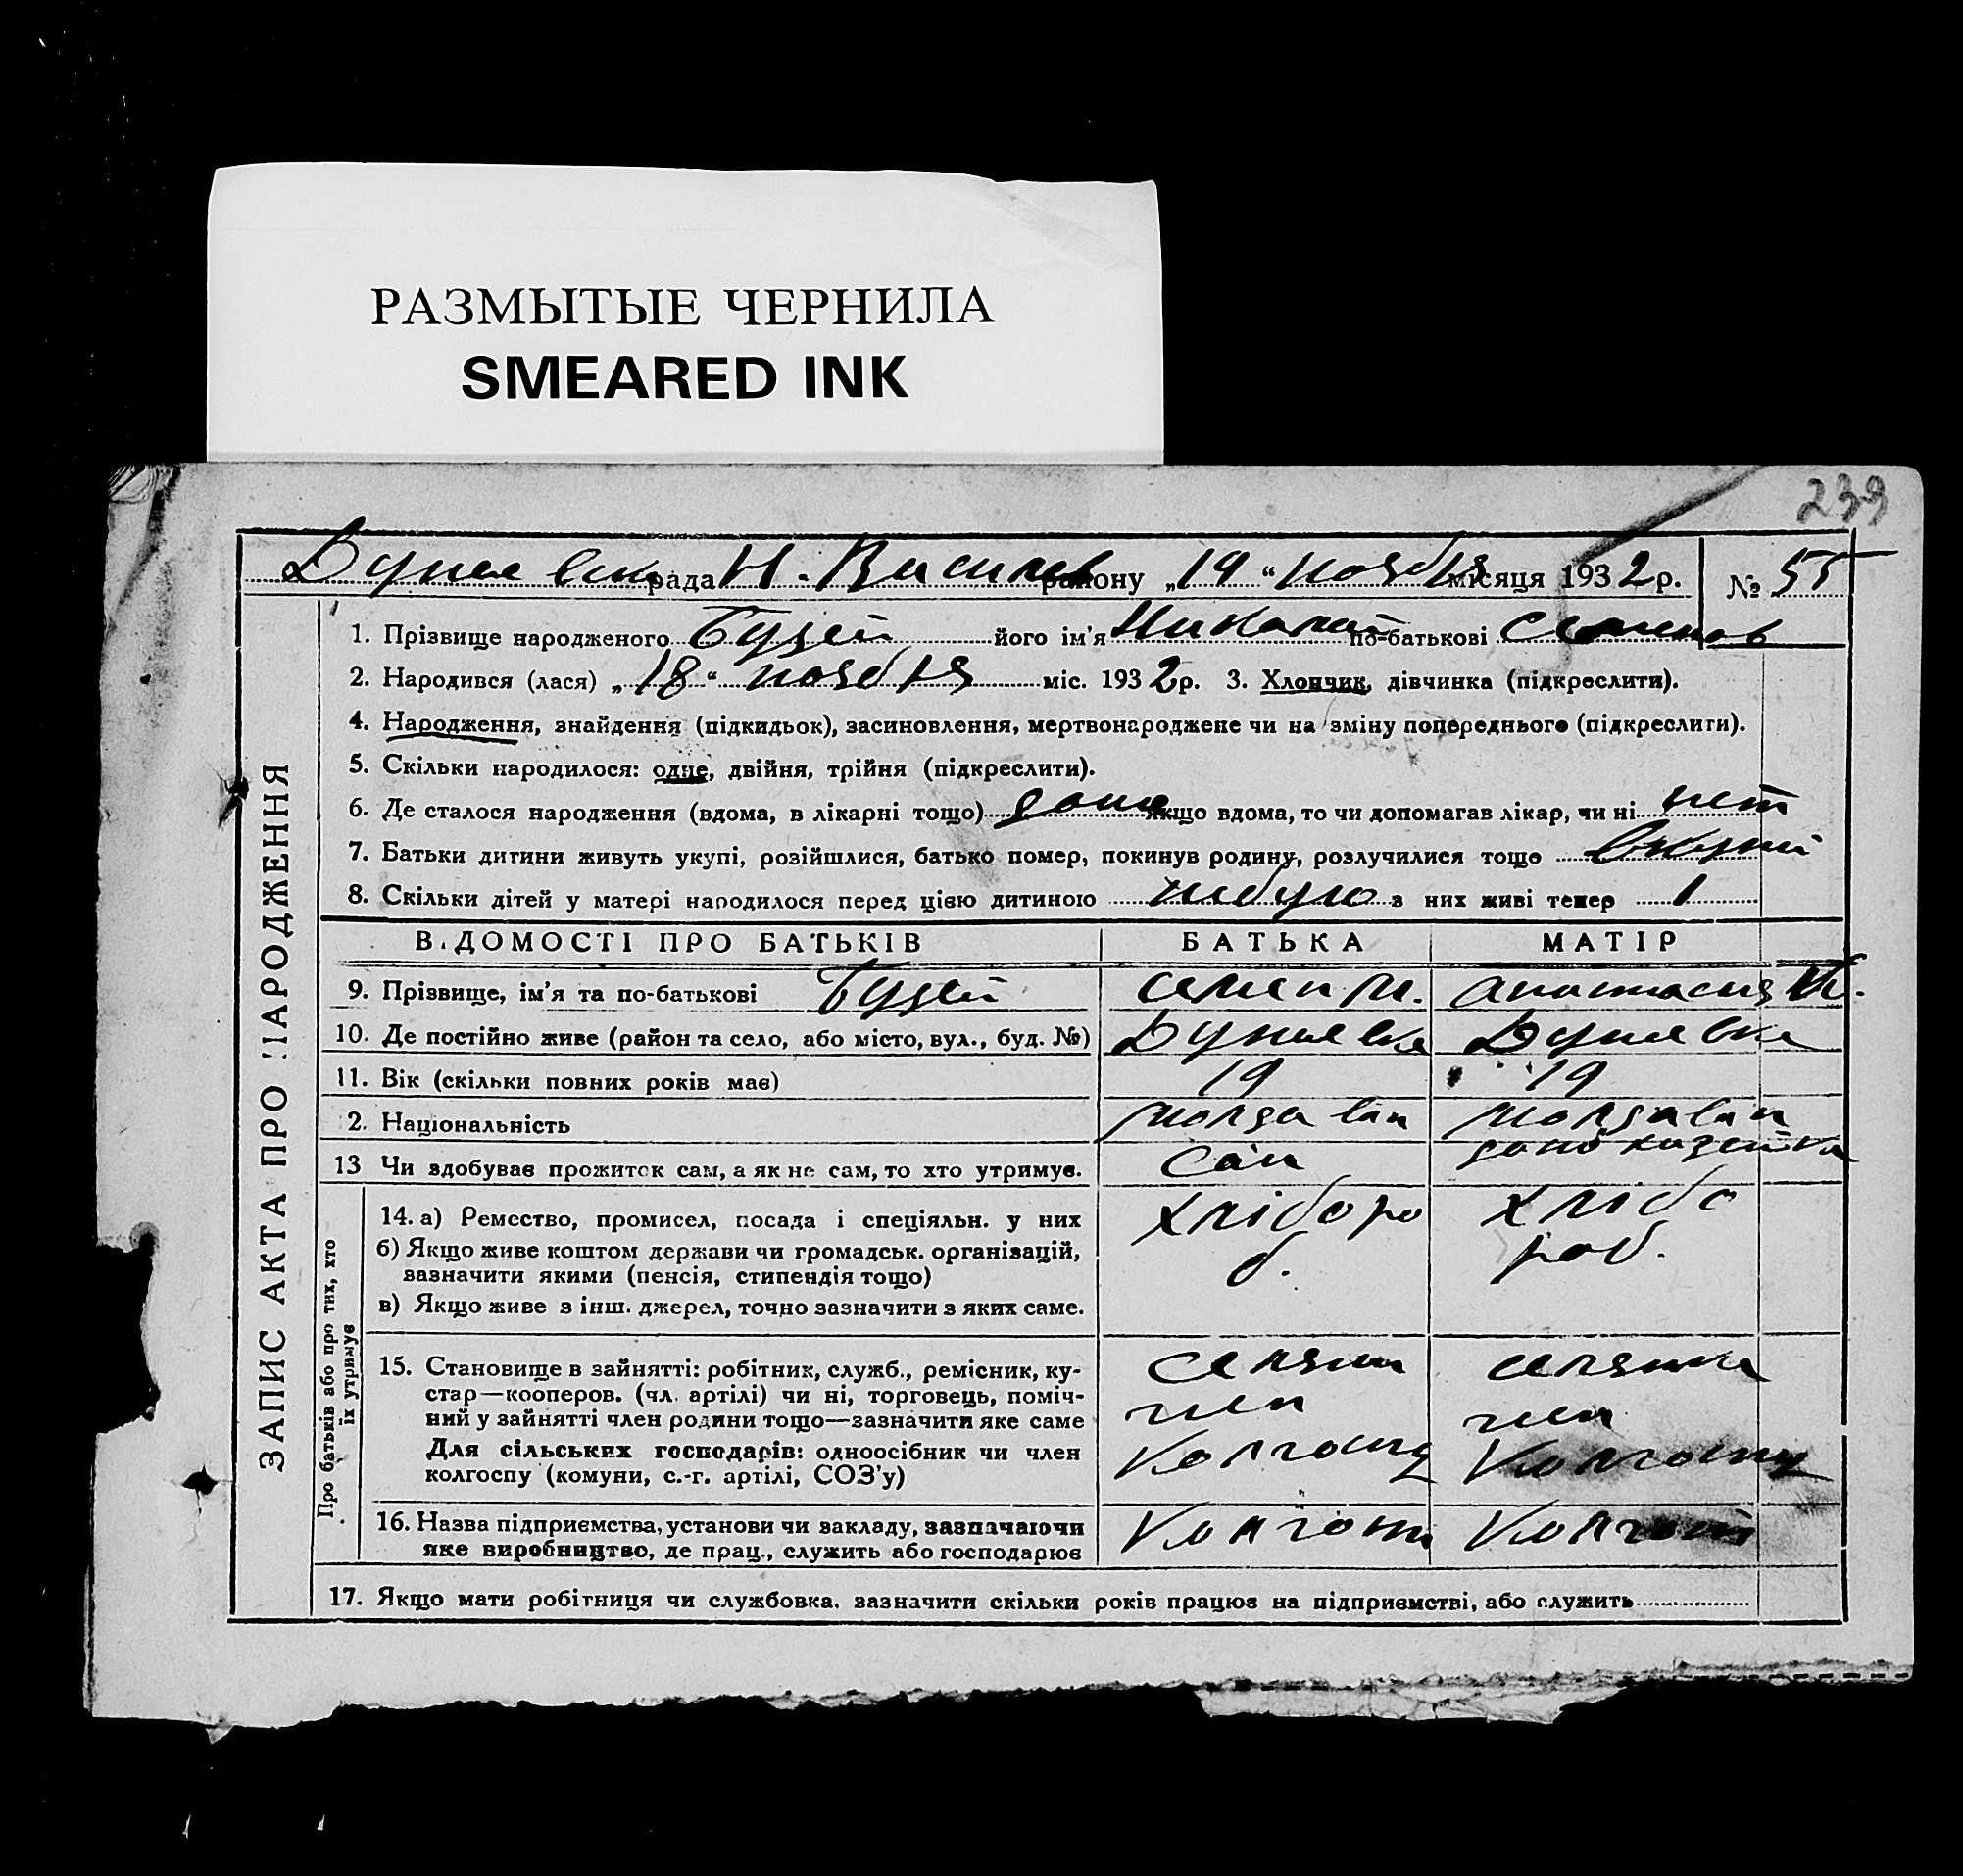 РАЗМЫТЫЕ ЧЕРНИЛА
SMEARED INK
239
Дунаевск рада Н. Василев району „19“ ноября місяця 1932 р. № 55
ЗАПИС АКТА ПРО НАРОДЖЕННЯ
1. Прізвище народженого Будей його ім'я Николай по-батькові Семенов
2. Народився (лася) „18“ ноября міс. 1932 р. 3. Хлопчик, дівчинка (підкреслити).
4. Народження, знайдення (підкидьок), засиновлення, мертвонароджене чи на зміну попереднього (підкреслити).
5. Скільки народилося: одне, двійня, трійня (підкреслити).
6. Де сталося народження (вдома, в лікарні тощо) дома якщо вдома, то чи допомагав лікар, чи ні нет
7. Батьки дитини живуть укупі, розійшлися, батько помер, покинув родину, розлучилися тощо вкупі
8. Скільки дітей у матері народилося перед цією дитиною небуло з них живі тепер 1
ВІДОМОСТІ ПРО БАТЬКІВ БАТЬКА МАТІР
9. Прізвище, ім'я та по-батькові Будей Семен М. Анастасия И.
10. Де постійно живе (район та село, або місто, вул., буд. №) Дунаевка Дунаевка
11. Вік (скільки повних років має) 19 19
2. Національність молдаван молдаван
13 Чи здобував прожиток сам, а як не сам, то хто утримує. Сам домохазяйка
Про батьків або про тих, хто
їх утримує
14. а) Ремество, промисел, посада і спеціяльн. у них хліборо хлібо
б) Якщо живе коштом держави чи громадськ. організацій, б. роб.
зазначити якими (пенсія, стипендія тощо)
в) Якщо живе з інш. джерел, точно зазначити з яких саме.
15. Становище в зайнятті: робітник, служб., ремісник, ку- селянин селянка
стар—кооперов. (чл. артілі) чи ні, торговець, поміч- член член
ний у зайнятті член родини тощо—зазначити яке саме
Для сільських господарів: одноосібник чи член колгоспу колгоспу
колгоспу (комуни, с.-г. артілі, СОЗ'у)
16. Назва підприємства, установи чи закладу, зазначаючи Колгосп Колгосп
яке виробництво, де прац., служить або господарює
17. Якщо мати робітниця чи службовка, зазначити скільки років працює на підприємстві, або служить